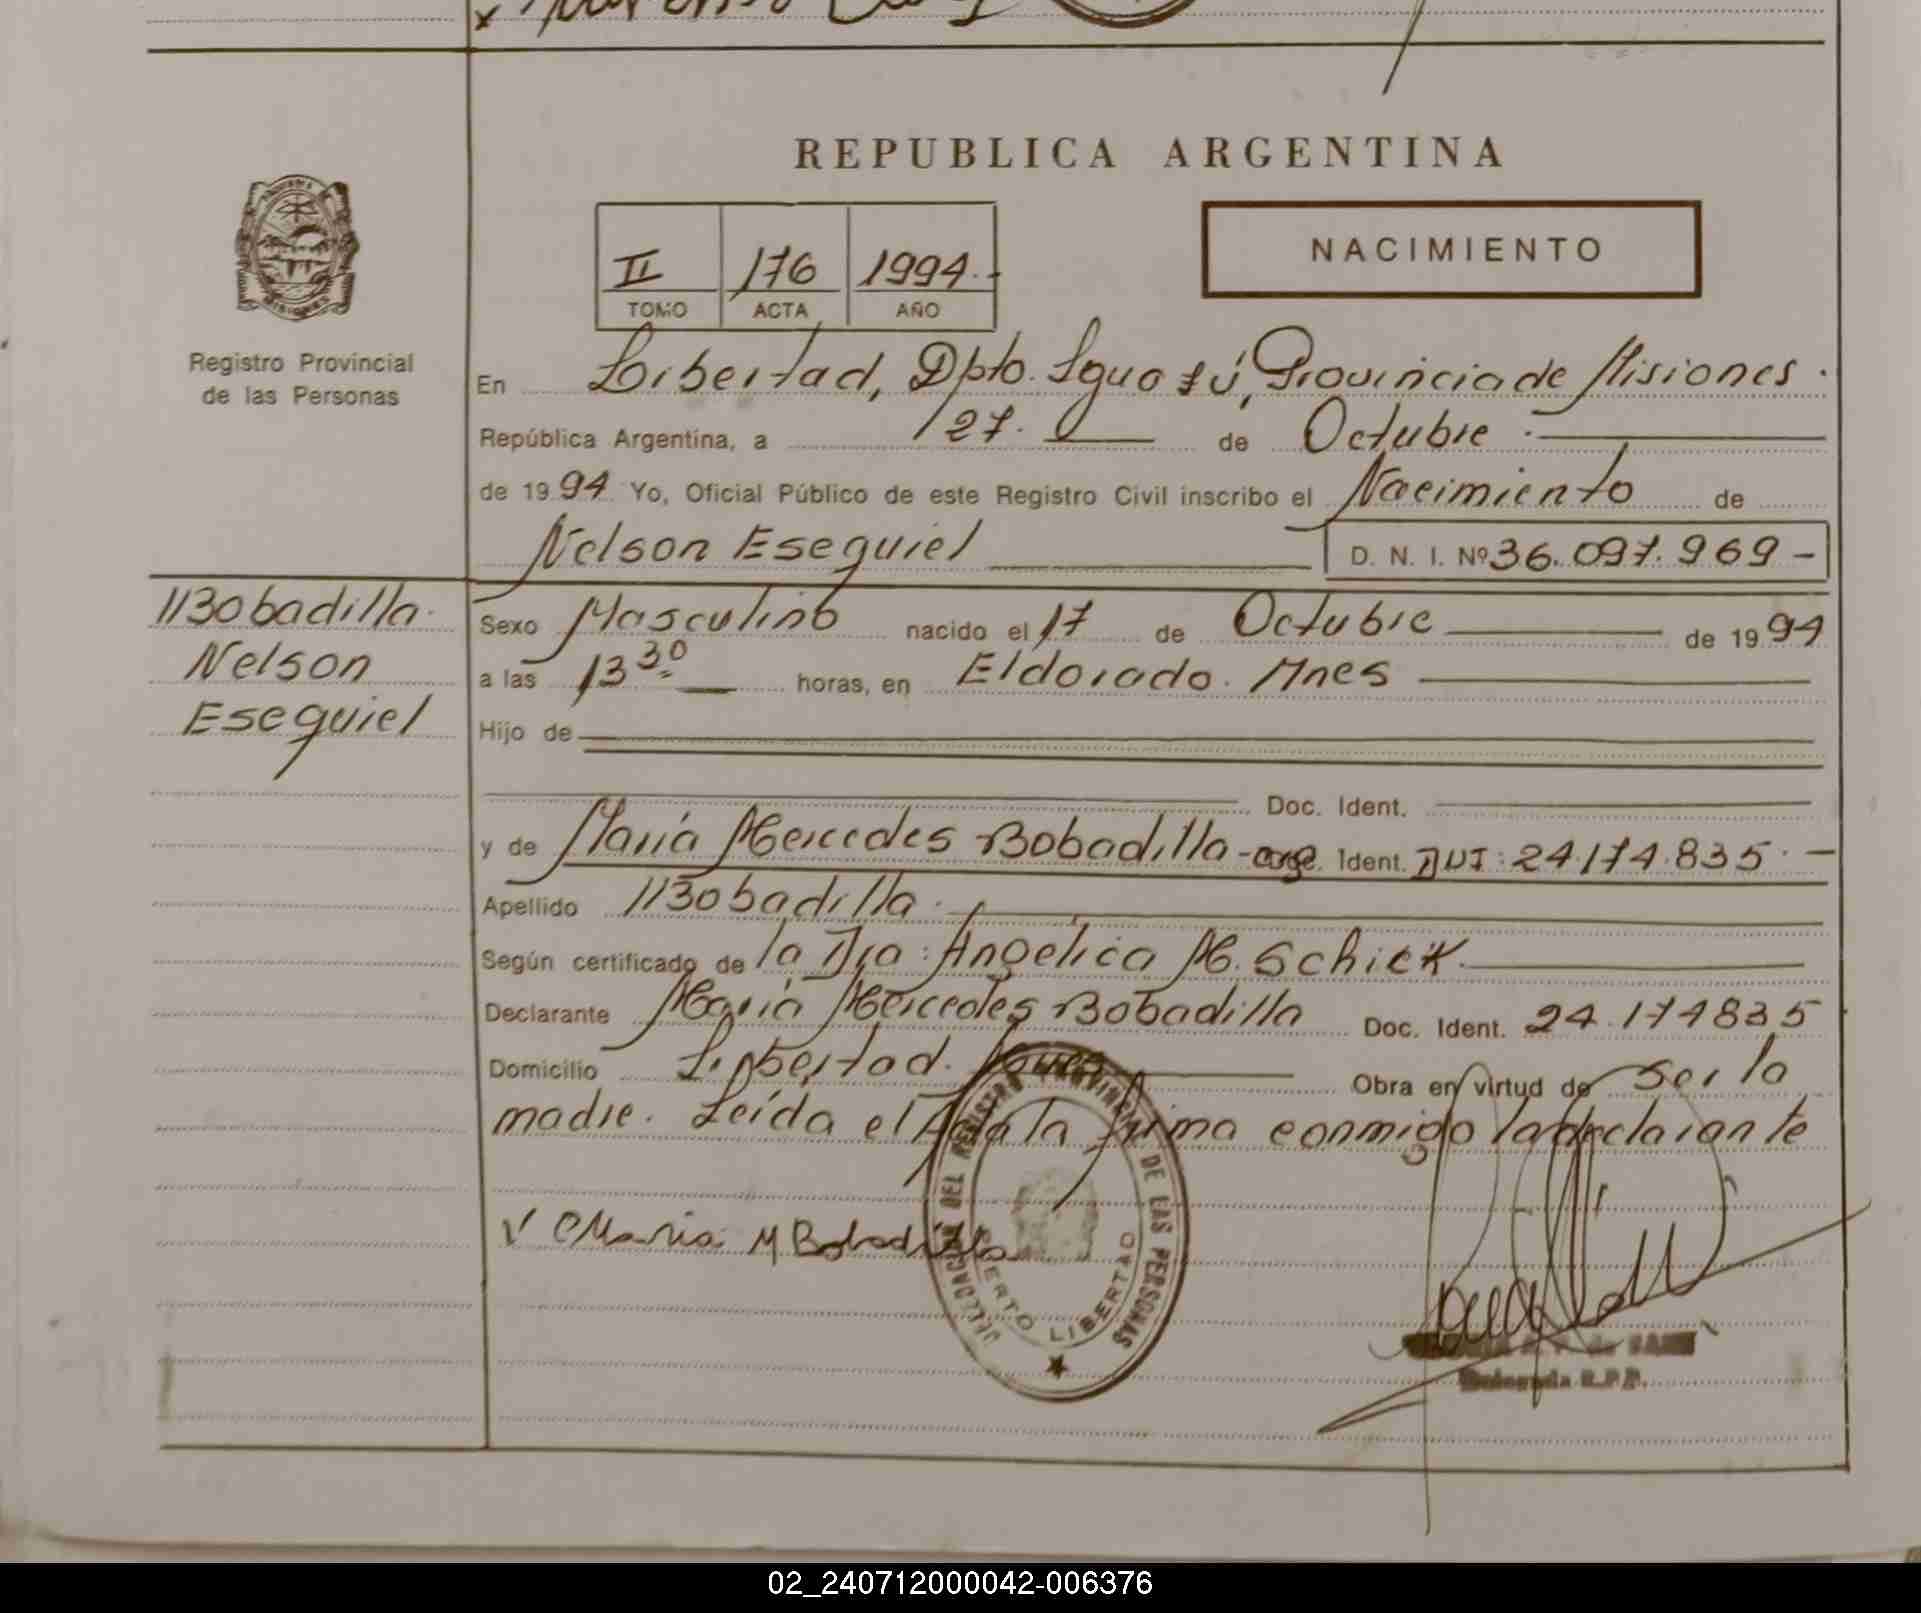 REPUBLICA ARGENTINA
II 176 1994.-
TOMO ACTA AÑO
NACIMIENTO
Registro Provincial
de las Personas
En Libertad, Dpto. Iguazú, Provincia de Misiones.
República Argentina, a 27. de Octubre.
de 1994 Yo, Oficial Público de este Registro Civil inscribo el Nacimiento de
Nelson Esequiel D. N. I. Nº 36.097.969-
Bobadilla.
Nelson
Esequiel
Sexo Masculino nacido el 17 de Octubre de 1994
a las 13 30 horas, en Eldorado. Mnes
Hijo de
Doc. Ident.
y de María Mercedes Bobadilla-arg. Ident. DNI: 24.174.835.-
Apellido Bobadilla.
Según certificado de la Dra: Angélica M. Schick.
Declarante María Mercedes Bobadilla Doc. Ident. 24.174835
Domicilio Libertad. Mnes Obra en virtud de ser la
madre. Leída el Acta la firma conmigo la declarante
Maria M Bobadilla
DELEGACION DEL REGISTRO PROVINCIAL DE LAS PERSONAS
PUERTO LIBERTAD
de
Delegada R.P.P.
02_240712000042-006376